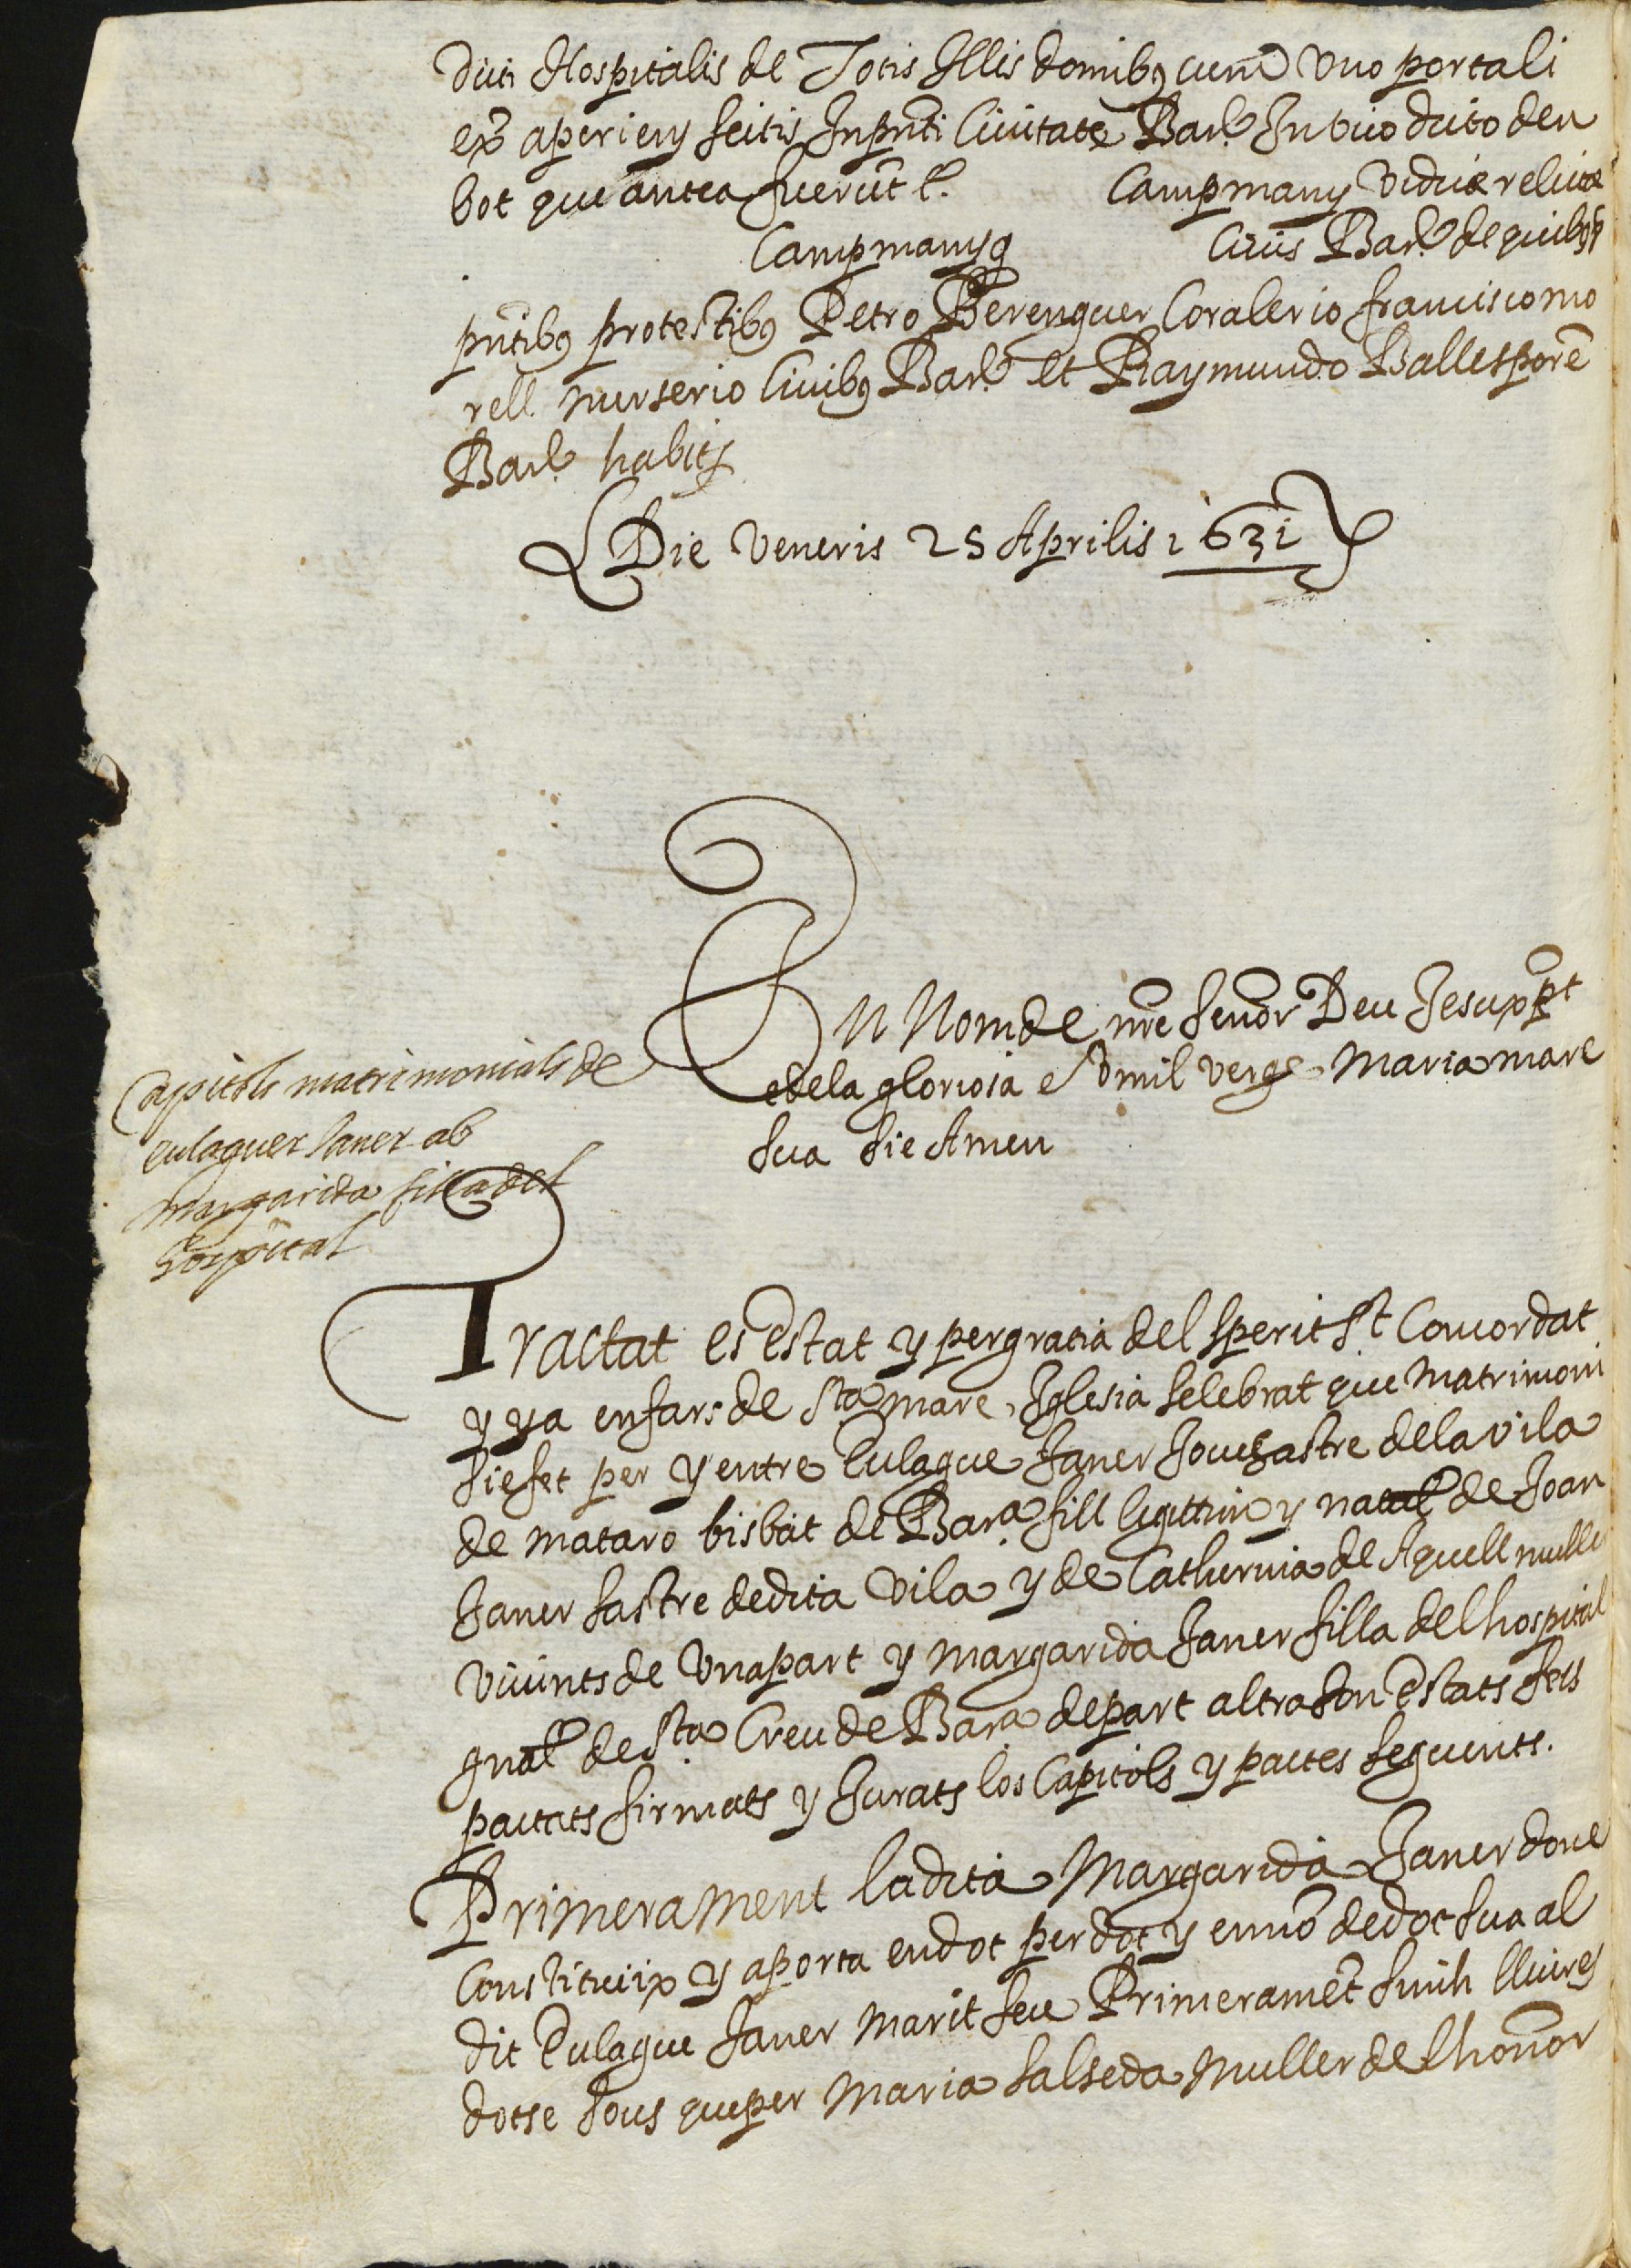 dicti Hospitalis de Totis Illis domibꝯ cum Vno portali
ex̃ aperiens scitis Inp̃nti Ciuitate Barč Invico dicto den
bot que antea fuerũt t.  Campmany Viduæ relictæ
Campmany q̃  Ciuis Barč de quibꝯ
p̃ntibꝯ protestibꝯ Petro Berenguer Coralerio francisco mo
rell mersserio Ciuibꝯ Barč et Raymundo Ballesporẽ
Barč habits
Die Veneris 25 Aprilis 1631
EN Nom de nr̃e Senõr Deu Jesuxp̃t
e dela gloriosa e Vmil Verge Maria mare
Sua Sie Amen
Capitols matrimonials de
eulaguer Janer ab
Margarida filla del
Hospital
Tractat es Estat y pergratia del Sperit St Concordat
y ya enfas de Sta mare Iglesia Selebrat que Matrimoni
Sie fet per y entre Eulague Janer Joue Sastre dela vila
de mataro bisbat de Bara fill legittim y natal̃ de Joan
Janer Sastre dedita Vila y de Catherina de Aquell muller
Viuints de Vnapart y Margarida Janer filla del hospital
gnãl de Sta Creu de Bara depart altra Son Estats fets
pactats firmats y Jurats los Capitols y pactes seguents.
Primerament ladita Margarida Janer done
Constituiix y aporta endot per dot y ennõ dedot Sua al
dit Eulague Janer Marit Seu Primeramẽt Sinch lliures
dotse Sous que per Maria Salseda Muller del honõr